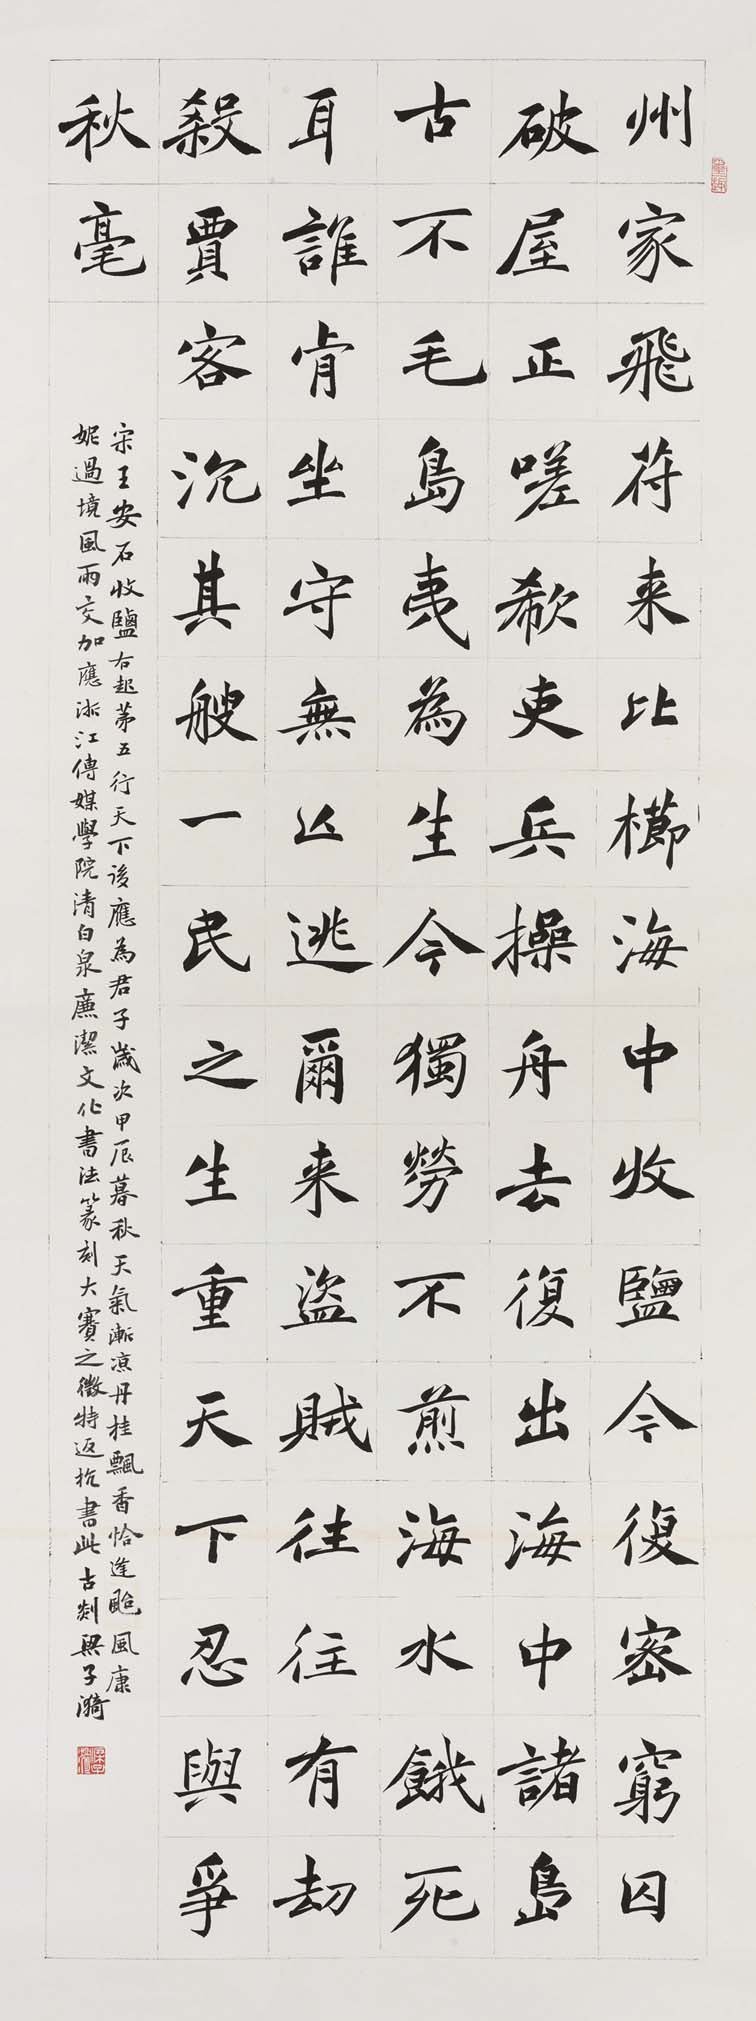 州家飛符来比櫛海中收鹽今復密窮囚
破屋正嗟欷吏兵操舟去復出海中諸島
古不毛島夷為生今獨勞不煎海水餓死
耳誰肯坐守無亡逃爾来盜賊往往有劫
殺賈客沉其艘一民之生重天下忍與爭
秋毫
宋王安石收鹽右起第五行天下後應為君子歲次甲辰暮秋天氣漸涼丹桂飄香恰逢颱風康
妮過境風雨交加應浙江傳媒學院清白泉廉潔文化書法篆刻大賽之徵特返杭書此古剡梁子漪